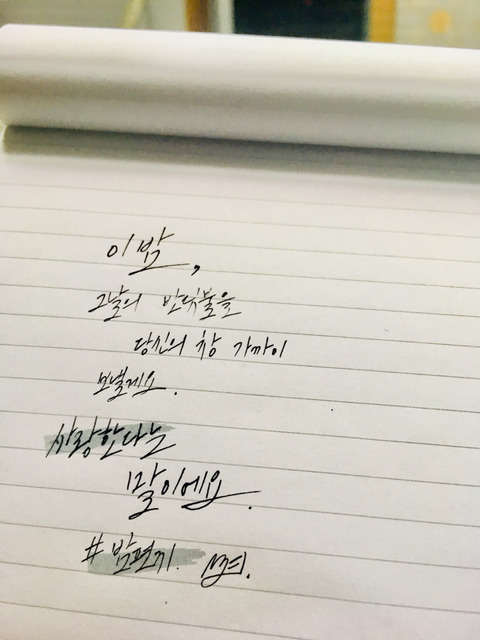 이 밤,
그날의 반딧불을
당신의 창 가까이
보낼게요.
사랑한다는
말이에요.
#밤편지.